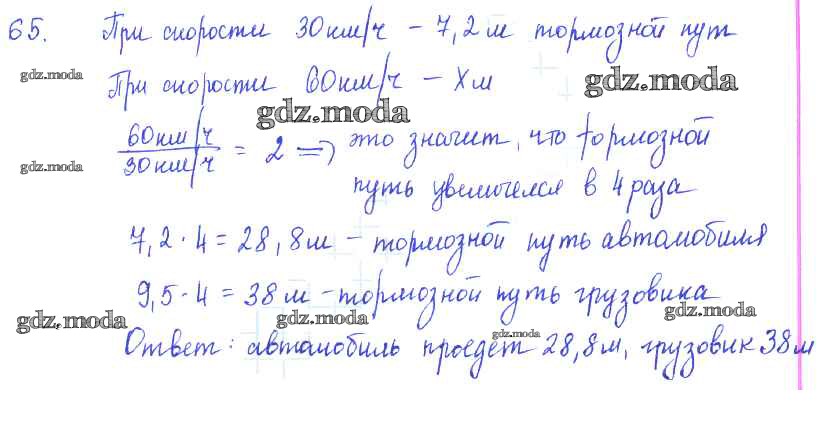 65. При скорости 30 км/ч – 7,2 м тормозной путь
gdz.moda
При скорости 60 км/ч – X м
gdz.moda
gdz.moda
60 км/ч / 30 км/ч = 2 => это значит, что тормозной
gdz.moda
путь увеличелся в 4 раза
7,2 · 4 = 28,8 м – тормозной путь автомобиля
9,5 · 4 = 38 м – тормозной путь грузовика
gdz.moda
gdz.moda
gdz.moda
gdz.moda
Ответ: автомобиль проедет 28,8 м, грузовик 38 м